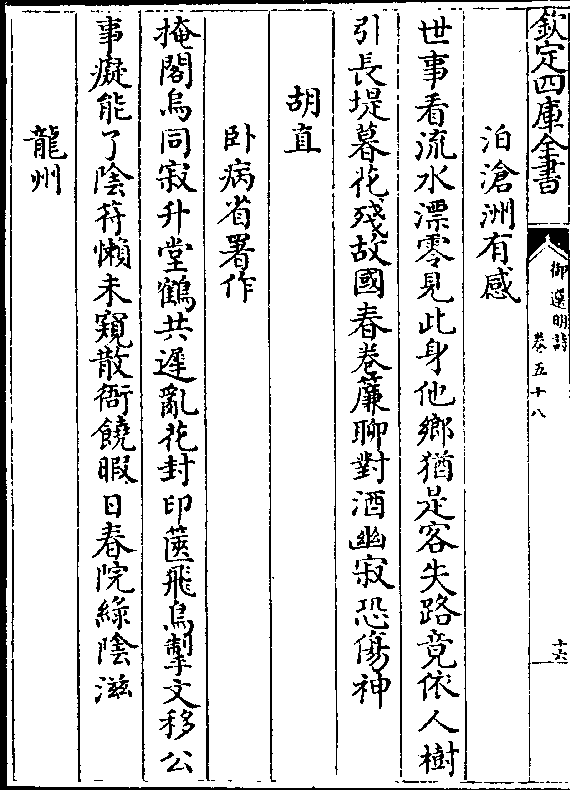 欽定四庫全書
御選明詩
卷五十八
十六
泊滄洲有感
世事看流水漂零見此身他鄉猶是客失路竟依人樹
引長堤暮花殘故國春卷簾聊對酒幽寂恐傷神
胡直
卧病省署作
掩閣烏同寂升堂鶴共遲亂花封印篋飛鳥掣文移公
事癡能了陰符懶未窺散衙饒暇日春院綠陰滋
龍州